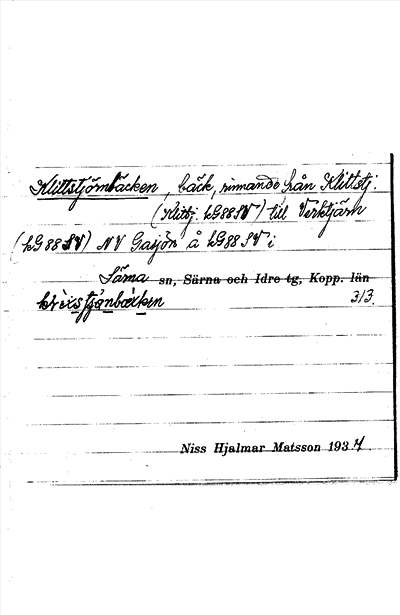 Klittstjörnbäcken, bäck, rinnande från Klittstj.
(Klittj: LG88SV) till Verktjärn
(LG88SV) NV Gasjön å LG88SV i
Särna sn, Särna och Idre tg, Kopp. län
3/3
Niss Hjalmar Matsson 1934.